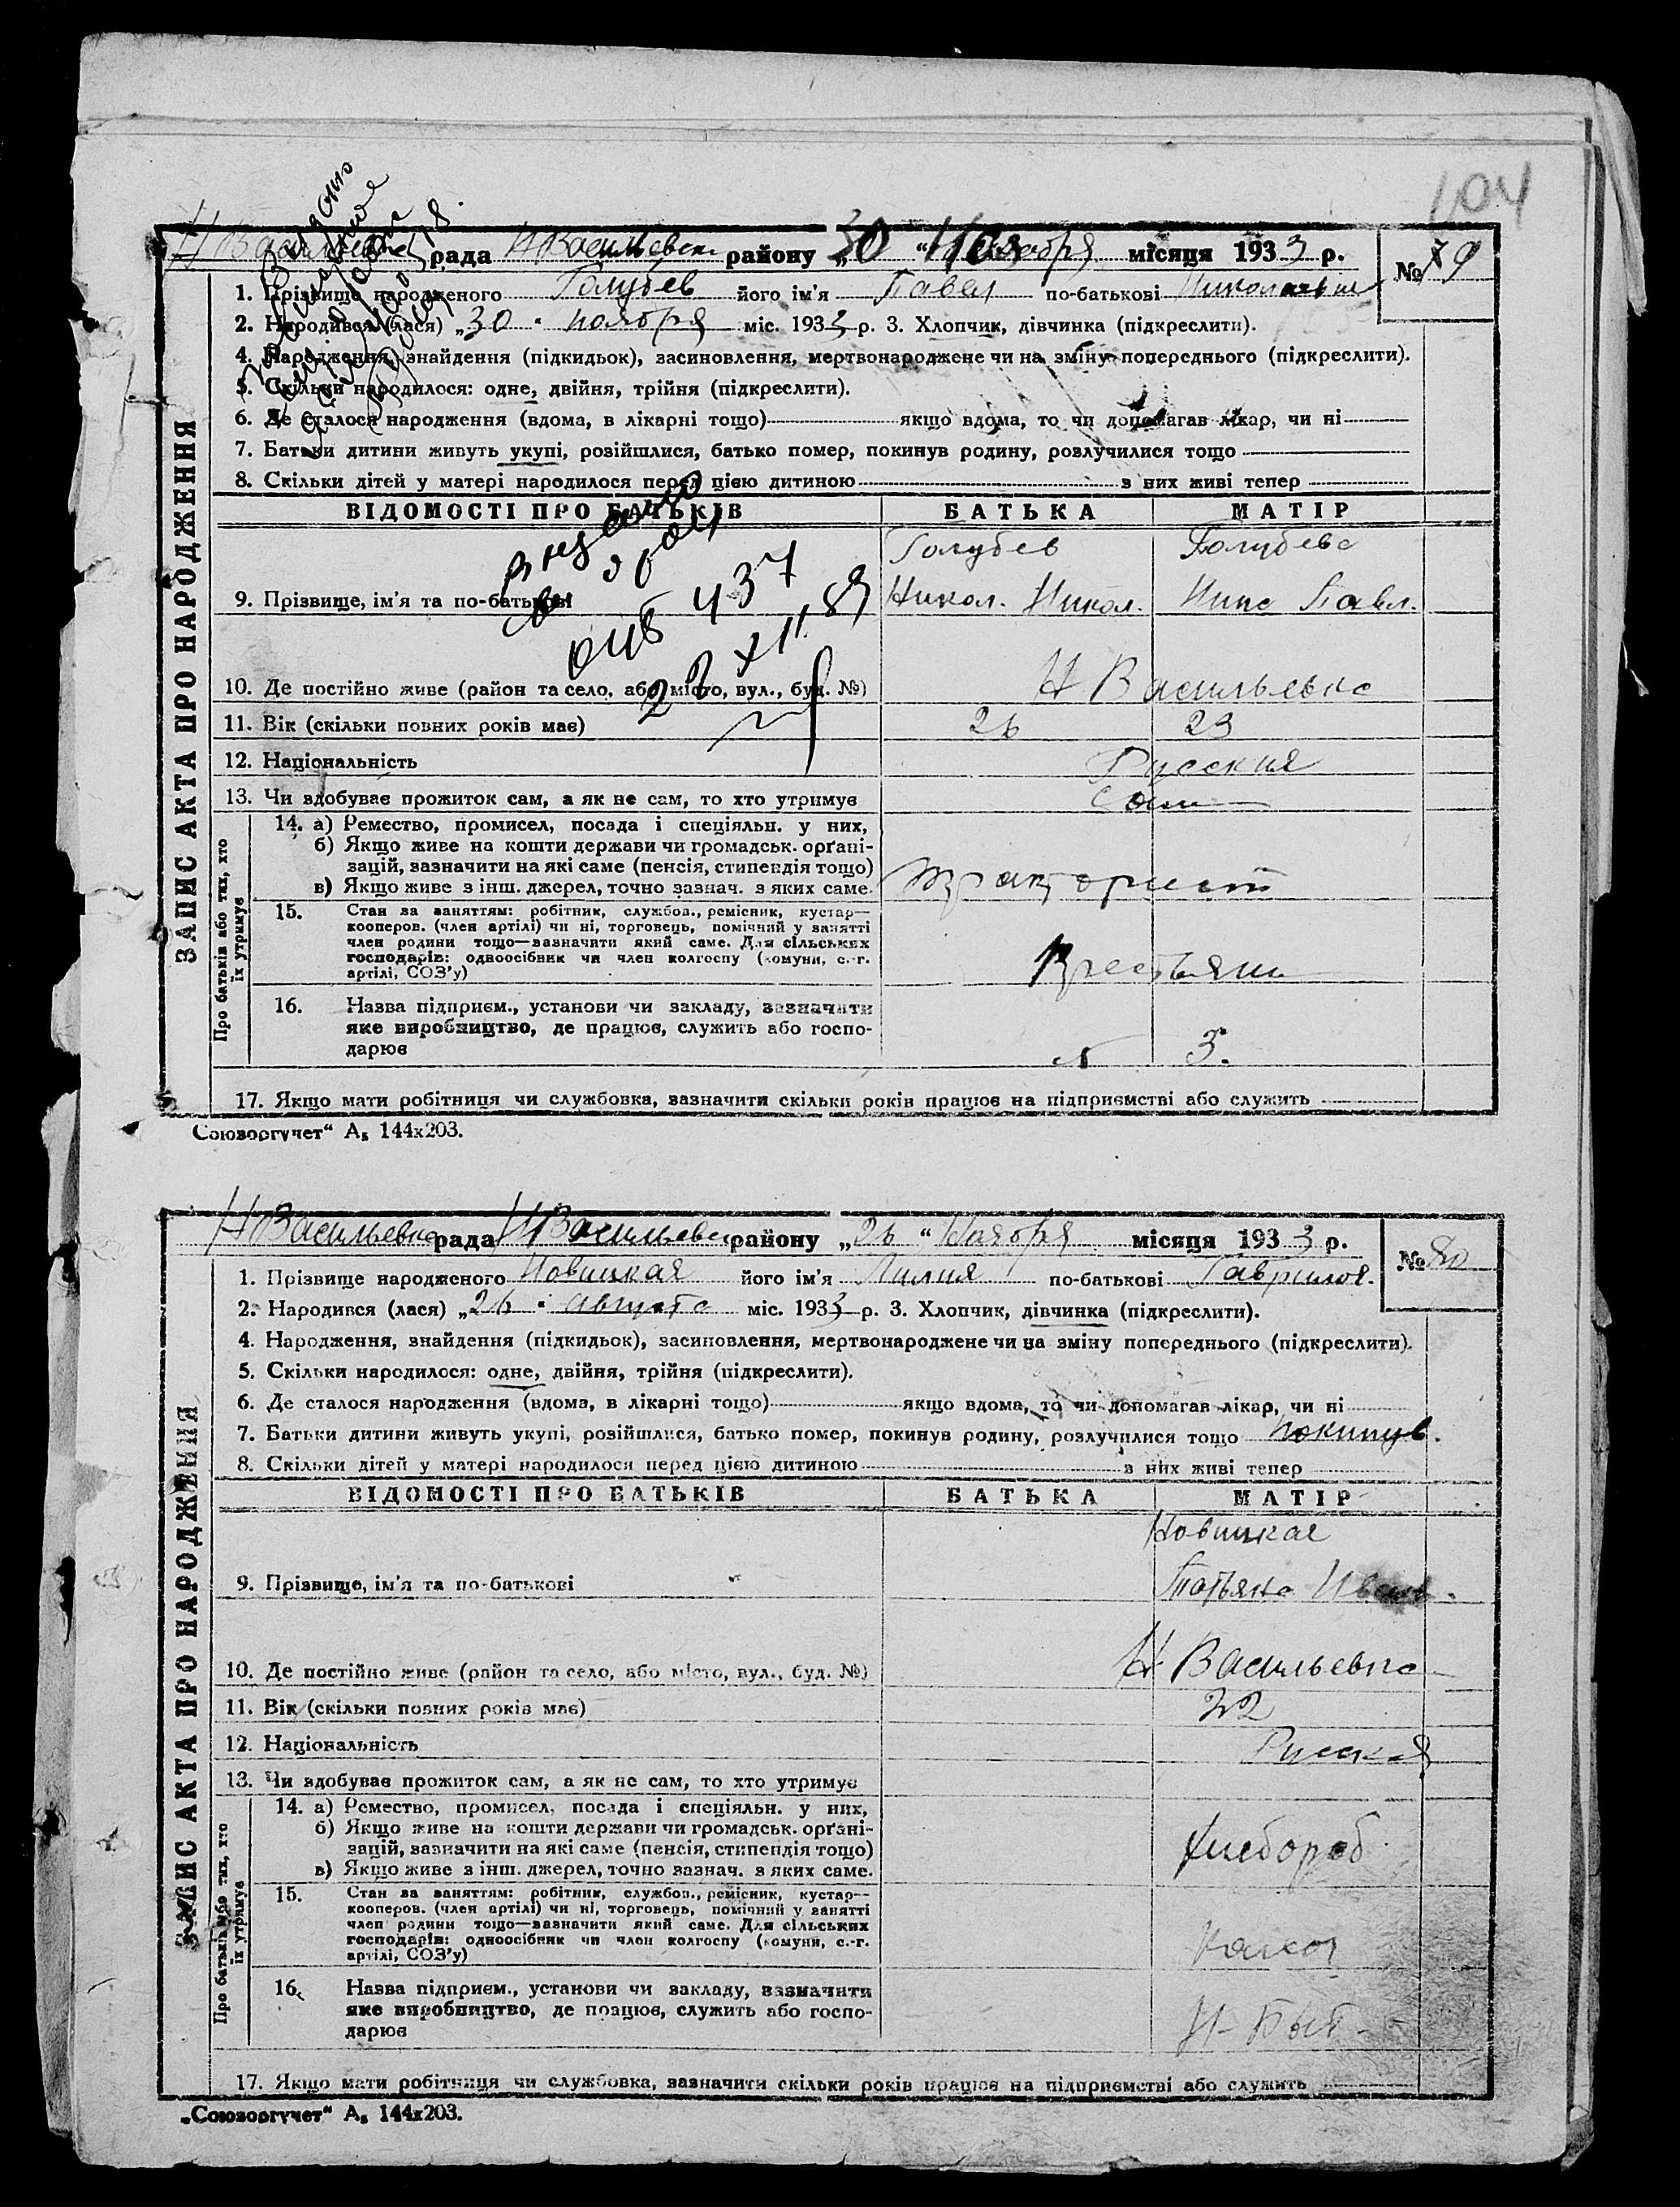 104
Н Васильевка рада Н Васильевск району „30“ Ноября місяця 1933 р.
№ 79
1. Прізвище народженого Голубев його ім'я Павел по-батькові Николаевич
2. Народився (лася) „30“ ноября міс. 1933 р. 3. Хлопчик, дівчинка (підкреслити).
4. Народження, знайдення (підкидьок), засиновлення, мертвонароджене чи на зміну попереднього (підкреслити).
5. Скільки народилося: одне, двійня, трійня (підкреслити).
6. Де сталося народження (вдома, в лікарні тощо) якщо вдома, то чи допомагав лікар, чи ні
7. Батьки дитини живуть укупі, розійшлися, батько помер, покинув родину, розлучилися тощо
8. Скільки дітей у матері народилося перед цією дитиною з них живі тепер
ЗАПИС АКТА ПРО НАРОДЖЕННЯ
ВІДОМОСТІ ПРО БАТЬКІВ БАТЬКА МАТІР
Голубев Голубева
9. Прізвище, ім'я та по-батькові Никол. Никол. Нина Павл.
437
10. Де постійно живе (район та село, або місто, вул., буд. №) Н Васильевка
11. Вік (скільки повних років має) 26 23
12. Національність Русские
13. Чи здобуває прожиток сам, а як не сам, то хто утримує Сами
Про батьків або тих, хто їх утримує
14. а) Ремество, промисел, посада і спеціяльн. у них,
б) Якщо живе на кошти держави чи громадськ. орґані-
зацій, зазначити на які саме (пенсія, стипендія тощо)
в) Якщо живе з інш. джерел, точно зазнач. з яких саме. тракторист
15. Стан за заняттям: робітник, службов., ремісник, кустар—
кооперов. (член артілі) чи ні, торговець, помічний у занятті
член родини тощо—зазначити який саме. Для сільських
господарів: одноосібник чи член колгоспу (комуни, с.-г.
артілі, СОЗ'у) Крестьяни
16. Назва підприєм., установи чи закладу, зазначити
яке виробництво, де працює, служить або госпо-
дарює
17. Якщо мати робітниця чи службовка, зазначити скільки років працює на підприємстві або служить
Союзоргучет“ А₅ 144х203.
Н Васильевка рада Н Васильевск району „26“ Ноября місяця 1933 р.
№ 80
1. Прізвище народженого Новицкая його ім'я Лилия по-батькові Гаврилов.
2. Народився (лася) „26“ августа міс. 1933 р. 3. Хлопчик, дівчинка (підкреслити).
4. Народження, знайдення (підкидьок), засиновлення, мертвонароджене чи на зміну попереднього (підкреслити).
5. Скільки народилося: одне, двійня, трійня (підкреслити).
6. Де сталося народження (вдома, в лікарні тощо) якщо вдома, то чи допомагав лікар, чи ні
7. Батьки дитини живуть укупі, розійшлися, батько помер, покинув родину, розлучилися тощо покинув.
8. Скільки дітей у матері народилося перед цією дитиною з них живі тепер
ЗАПИС АКТА ПРО НАРОДЖЕННЯ
ВІДОМОСТІ ПРО БАТЬКІВ БАТЬКА МАТІР
Новицкая
9. Прізвище, ім'я та по-батькові Татьяна Иванов.
10. Де постійно живе (район та село, або місто, вул., буд. №) Н Васильевка
11. Вік (скільки повних років має) 22
12. Національність Русская
13. Чи здобуває прожиток сам, а як не сам, то хто утримує
Про батьків або тих, хто їх утримує
14. а) Ремество, промисел, посада і спеціяльн. у них,
б) Якщо живе на кошти держави чи громадськ. орґані-
зацій, зазначити на які саме (пенсія, стипендія тощо) хлебороб
в) Якщо живе з інш. джерел, точно зазнач. з яких саме.
15. Стан за заняттям: робітник, службов., ремісник, кустар—
кооперов. (член артілі) чи ні, торговець, помічний у занятті
член родини тощо—зазначити який саме. Для сільських
господарів: одноосібник чи член колгоспу (комуни, с.-г.
артілі, СОЗ'у)
16. Назва підприєм., установи чи закладу, зазначити
яке виробництво, де працює, служить або госпо-
дарює
17. Якщо мати робітниця чи службовка, зазначити скільки років працює на підприємстві або служить
„Союзоргучет“ А₅ 144х203.